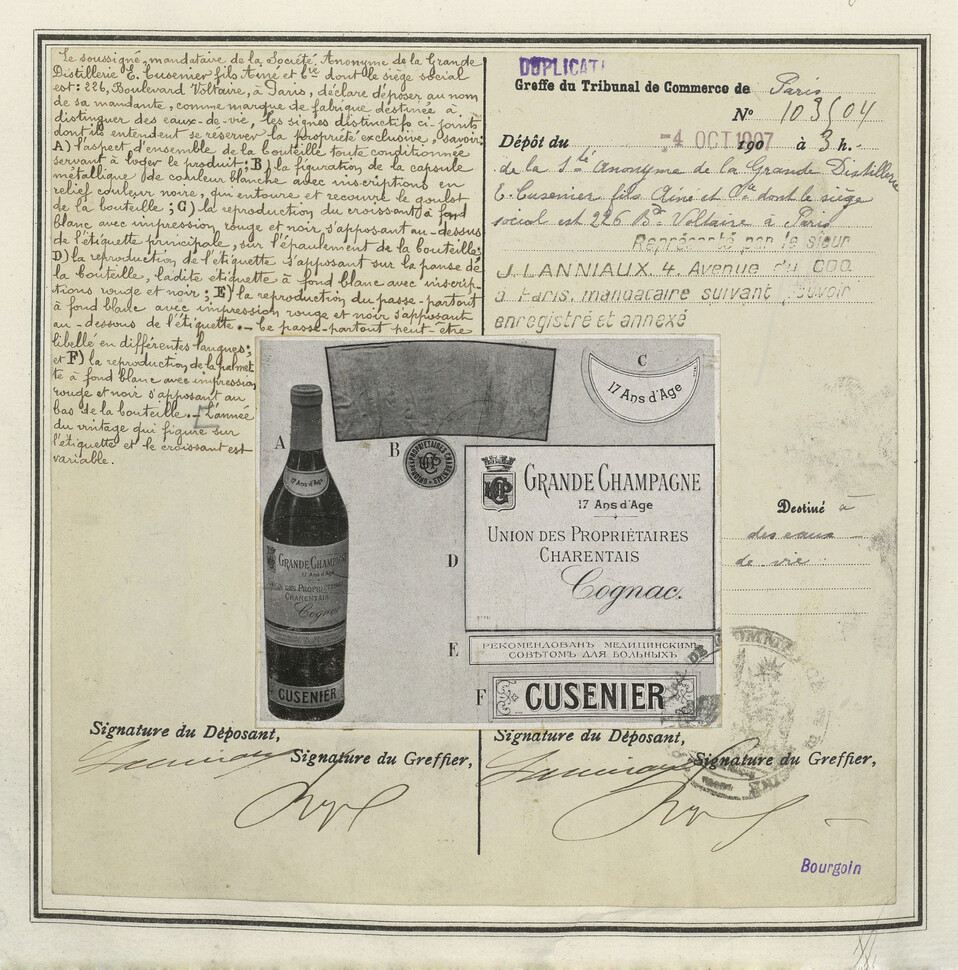 Le soussigné, mandataire de la Société Anonyme de la Grande
Distillerie E. Cusenier fils Aîné et Cie dont le siège social
est: 226, Boulevard Voltaire, à Paris, déclare déposer au nom
de sa mandante, comme marque de fabrique destinée à
distinguer des eaux-de-vie, les signes distinctifs ci-joints
dont ils entendent se réserver la propriété exclusive, savoir:
A) l'aspect d'ensemble de la bouteille toute conditionnée
servant à loger le produit; B) la figuration de la capsule
métallique de couleur blanche avec inscriptions en
relief couleur noire, qui entoure et recouvre le goulot
de la bouteille; C) la reproduction du croissant à fond
blanc avec impression rouge et noir s'apposant au-dessus
de l'étiquette principale, sur l'épaulement de la bouteille;
D) la reproduction de l'étiquette s'apposant sur la panse de
la bouteille, ladite étiquette à fond blanc avec inscrip-
tions rouge et noir; E) la reproduction du passe-partout
à fond blanc avec impression rouge et noir s'apposant
au-dessous de l'étiquette.- Ce passe-partout peut-être
libellé en différentes langues;
et F) la reproduction de la palmet
te à fond blanc avec impression
rouge et noir s'apposant au
bas de la bouteille.- L'année
du vintage qui figure sur
l'étiquette et le croissant est
variable.
DUPLICATA
Greffe du Tribunal de Commerce de Paris
No 103504
Dépôt du -4 OCT 1907 1907 à 3 h.-
de la Sté Anonyme de la Grande Distillerie
E. Cusenier fils Aîné et Cie dont le siège
social est 226 Bd Voltaire à Paris
Représenté par le sieur
J. LANNIAUX. 4. Avenue du COQ
à Paris, mandataire suivant pouvoir
enregistré et annexé
A
B
C
17 Ans d'Age
UNION DES PROPRIÉTAIRES CHARENTAIS
GRANDE CHAMPAGNE
17 Ans d'Age
UNION DES PROPRIÉTAIRES
CHARENTAIS
Cognac.
D
17 Ans d'Age
GRANDE CHAMPAGNE
17 Ans d'Age
UNION DES PROPRIÉTAIRES
CHARENTAIS
Cognac
CUSENIER
E
РЕКОМЕНДОВАНЪ МЕДИЦИНСКИМЪ
СОВѢТОМЪ ДЛЯ БОЛЬНЫХЪ
F
CUSENIER
Destiné à
des eaux
de vie.
Signature du Déposant,
Signature du Greffier,
Signature du Déposant,
Signature du Greffier,
Bourgoin